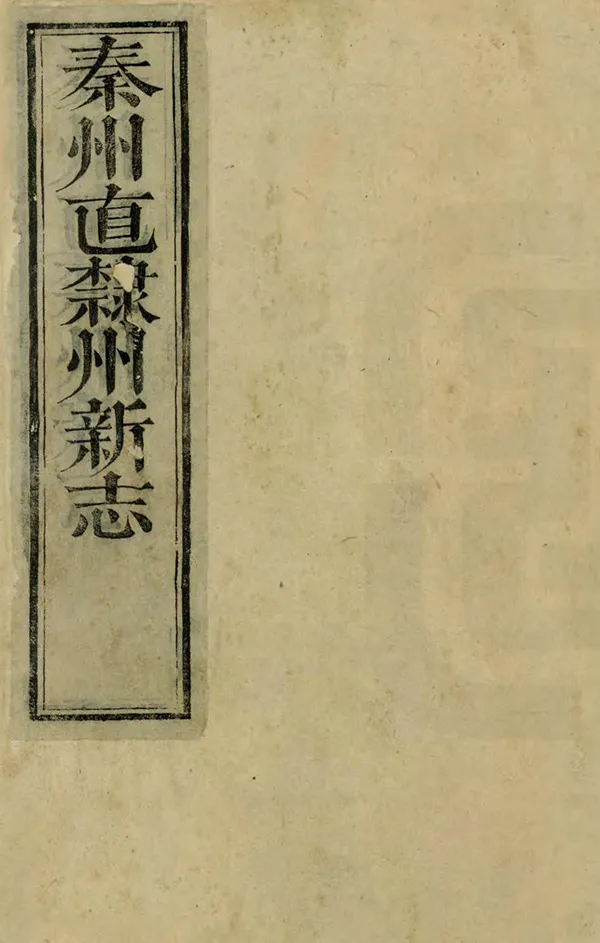 秦州直隸州新志